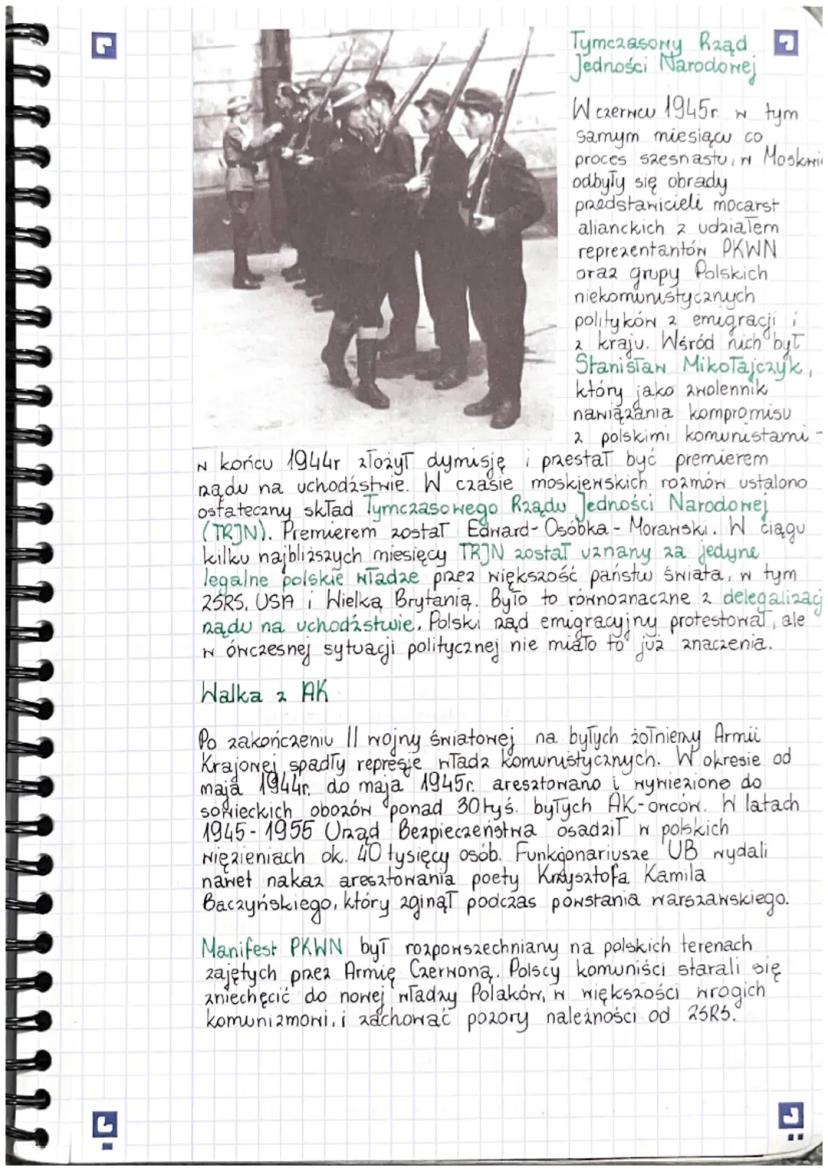 Tymczasowy Rząd
Jedności Narodowej
W czerwcu 1945r. w tym
samym miesiącu co
proces szesnastu, w Moskwi
odbyły się obrady
przedstawicieli mocarst
alianckich z udziałem
reprezentantów PKWN
oraz grupy Polskich
niekomunistycznych
polityków z emigracji i
z kraju. Wśród nich był
Stanisław Mikołajczyk,
który jako zwolennik
nawiązania kompromisu
z polskimi komunistami -
w końcu 1944r złożył dymisję i przestał być premierem
rządu na uchodźstwie. W czasie moskiewskich rozmów ustalono
ostateczny skład Tymczasowego Rządu Jedności Narodowej
(TRJN). Premierem został Edward-Osóbka-Morawski. W ciągu
kilku najbliższych miesięcy TRJN został uznany za jedyne
legalne polskie władze przez większość państw świata, w tym
ZSRS, USA i Wielką Brytanią. Było to równoznaczne z delegalizacj
rządu na uchodźstwie. Polski rząd emigracyjny protestował, ale
w ówczesnej sytuacji politycznej nie miało to już znaczenia.
Walka z AK
Po zakończeniu II wojny światowej na byłych żołnierzy Armii
Krajowej spadły represje władz komunistycznych. W okresie od
maja 1944r. do maja 1945r. aresztowano i wywiezione do
sowieckich obozów ponad 30 tyś. byłych AK-owców. W latach
1945-1956 Urząd Bezpieczeństwa osadził w polskich
więzieniach ok. 40 tysięcy osób. Funkcjonariusze UB wydali
nawet nakaz aresztowania poety Krzysztofa Kamila
Baczyńskiego, który zginął podczas powstania warszawskiego.
Manifest PKWN był rozpowszechniany na polskich terenach
zajętych przez Armię Czerwoną. Polscy komuniści starali się
zniechęcić do nowej władzy Polaków, w większości wrogich
komunizmowi, i zachować pozory należności od ZSRS.